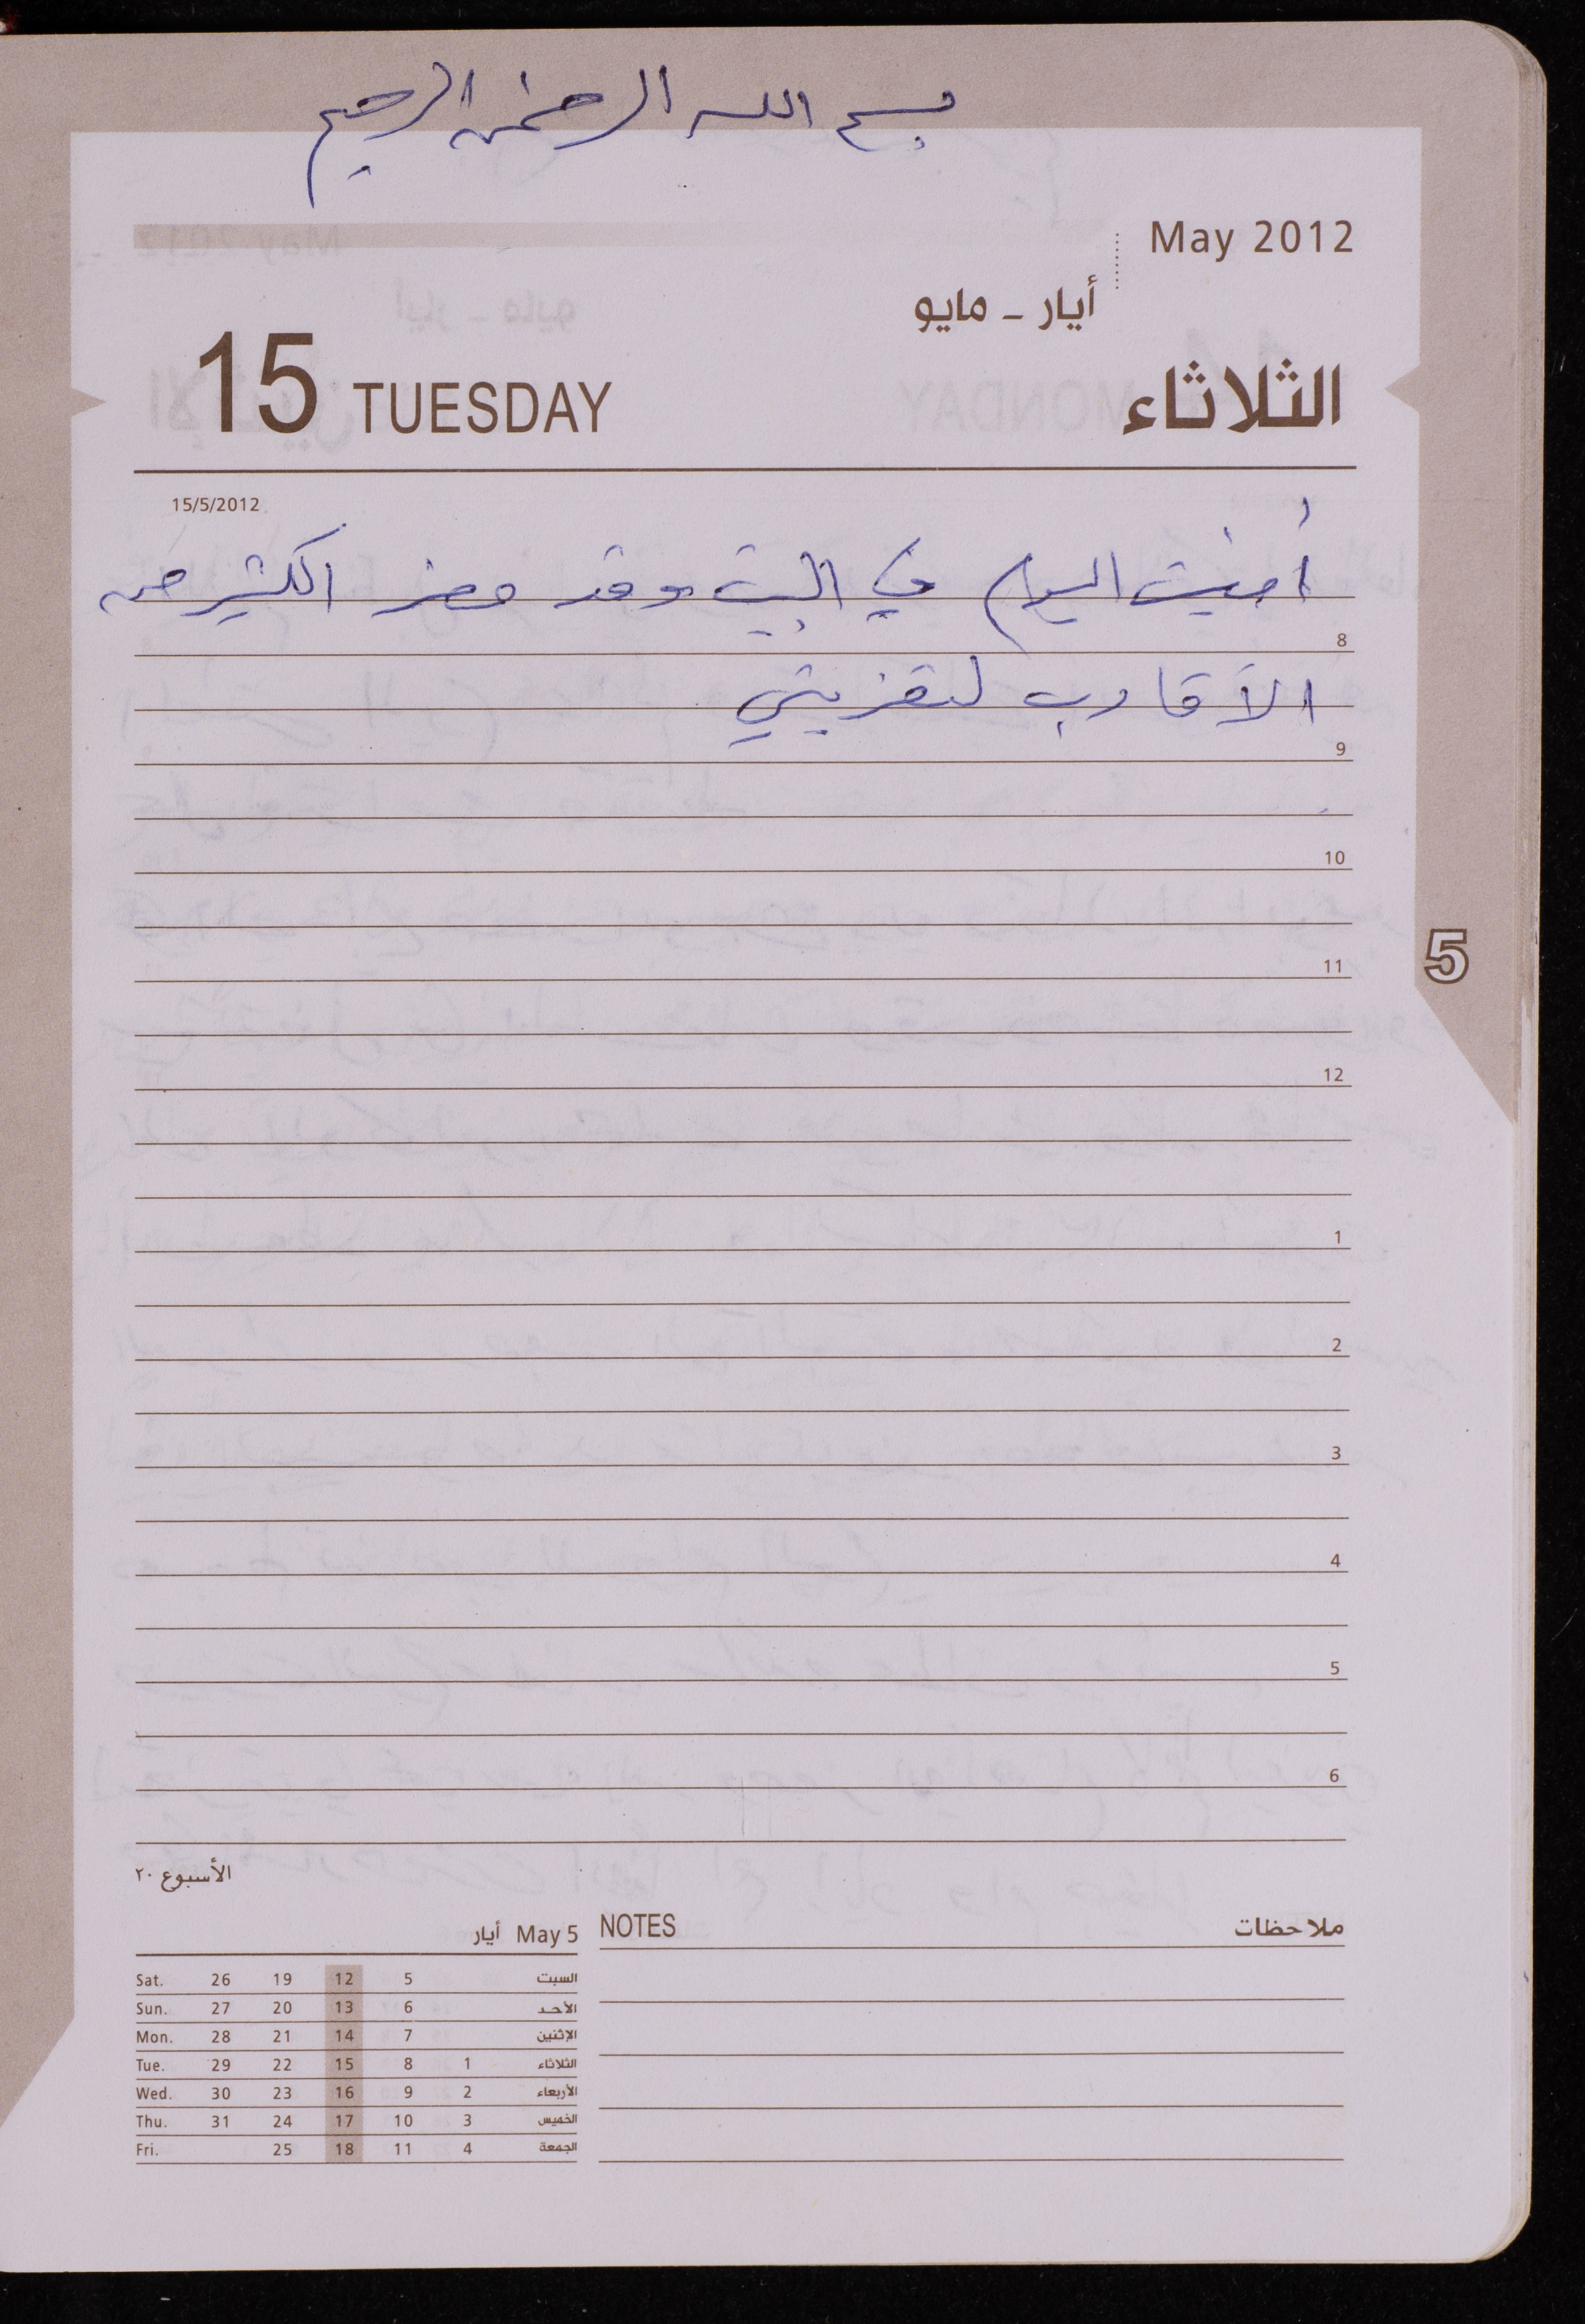 بسم الله الرحمن الرحيم
May 2012
أيار - مايو
15 TUESDAY الثلاثاء
15/5/2012
أمضيت اليوم في البيت وقد حضر الكثير من
8
الأقارب لتعزيتي
9
10
11
5
12
1
2
3
4
5
6
الأسبوع ٢٠
May 5 أيار
Sat. 26 19 12 5 السبت
Sun. 27 20 13 6 الأحد
Mon. 28 21 14 7 الإثنين
Tue. 29 22 15 8 1 الثلاثاء
Wed. 30 23 16 9 2 الأربعاء
Thu. 31 24 17 10 3 الخميس
Fri. 25 18 11 4 الجمعة
NOTES ملاحظات